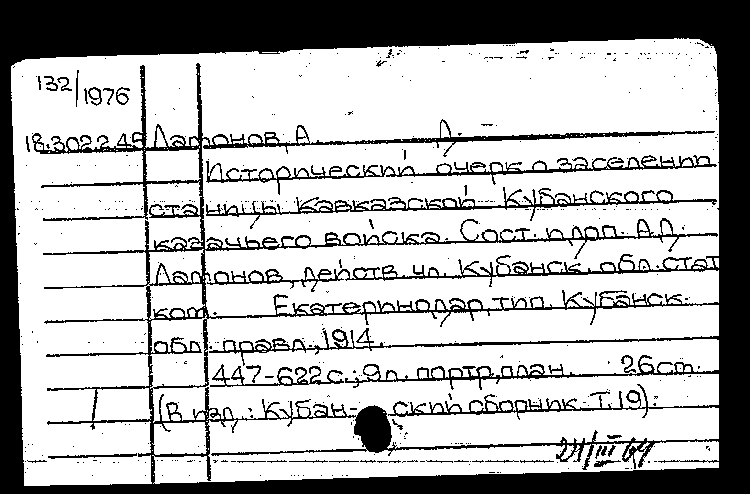 132/1976
18.302.2.45 Ламонов, А. Д. –
Исторический очерк о заселении
станицы Кавказской Кубанского
казачьего войска. Сост. и доп. А.Д.
Ламонов, действ. чл. Кубанск. обл. стат.
ком. Екатеринодар, тип. Кубанск.
обл. правл., 1914.
447-622 с.; 9 л. портр., план. 26 см.
(В изд.: Кубанский сборник. Т.19).
24/III 64